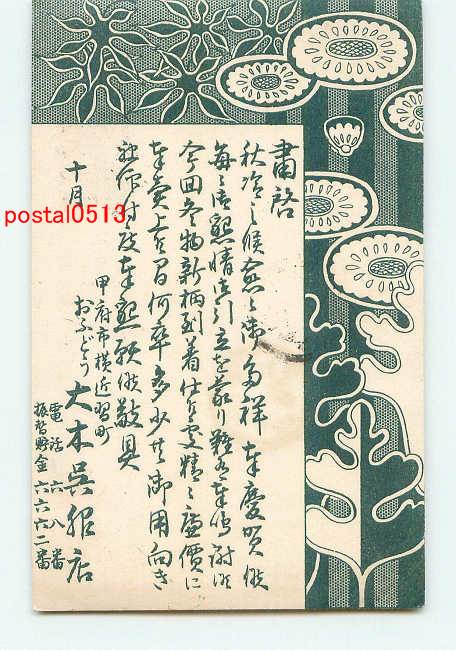 粛啓
秋冷之候愈々御多祥奉慶賀候
毎々御懇情御引立を蒙り難有奉鳴謝候
今回冬物新柄到着仕り候処精々廉價に
奉賣上候間何卒多少共御用向き
被仰付度奉懇願候敬具
十月
甲府市横近習町
おふどう
大木呉服店
電話六八番
振替貯金六六六二番
postal0513